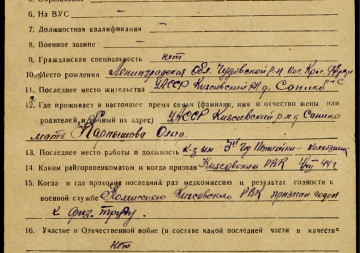 6. На ВУС —
7. Должностная квалификация —
8. Военное звание —
9. Гражданская специальность нет
10. Место рождения Ленинградская обл. Чудовский р-н пос. Крас. Фарфор
11. Последнее место жительства УАССР Кизовский р-н д. Санико
12. Где проживает в настоящее время семья (фамилия, имя и отчество жены или
родителей, личный их адрес) УАССР Кизовский р-н д. Санико
мать Карпошова Ольга
13. Последнее место работы и должность к-з им колхозник
14. Каким райгорвоенкоматом и когда призван Кизовским РВК
15. Когда и где проходил последний раз медкомиссию и результат годности к
военной службе Комиссией Кизовского РВК признан годен
к физ. труду.
16. Участие в Отечественной войне (в составе какой последней части в качестве
нет